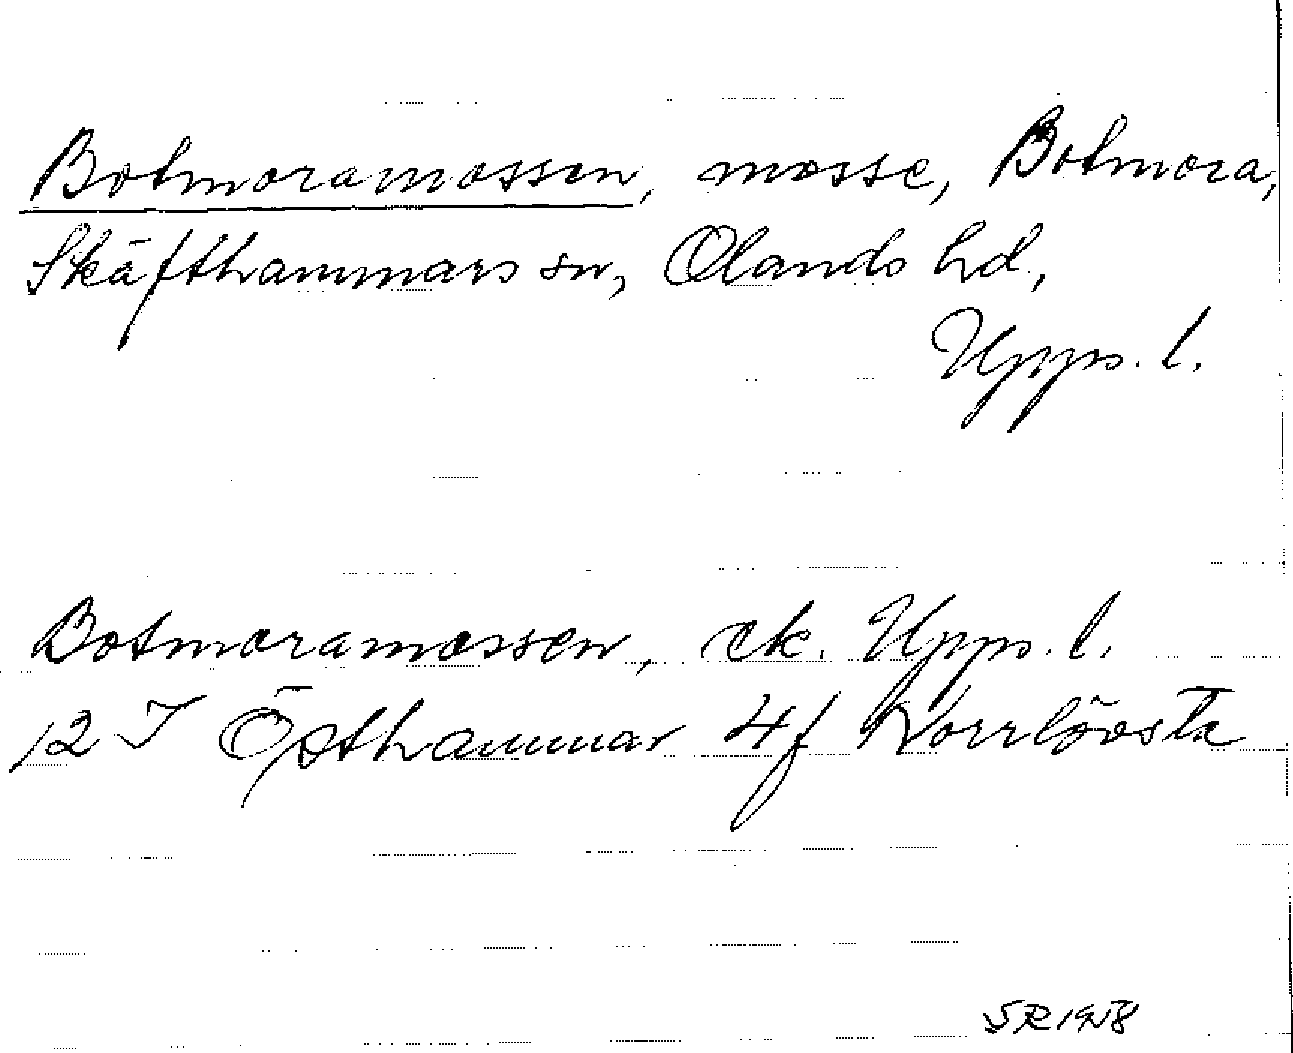 Botmoramossen, mosse, Botmora,
Skäfthammars sn, Olands hd,
Upps. l.
Botmoramossen, ek. Upps. l.
12 I Östhammar 4f Norrlövsta
SR 1958